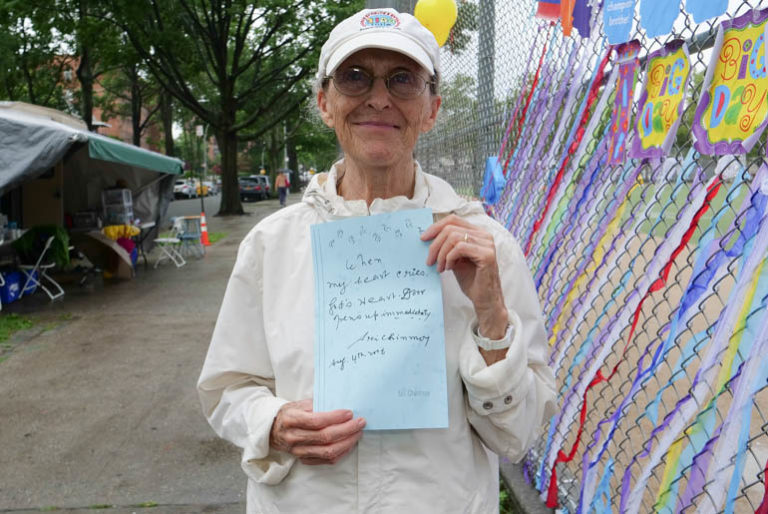 champion
brother
BIG
Day
BIG
Day
When
my heart cries,
God's Heart-Door
Opens up immediately.
Sri Chinmoy
Aug. 4th 2006
Sri Chinmoy